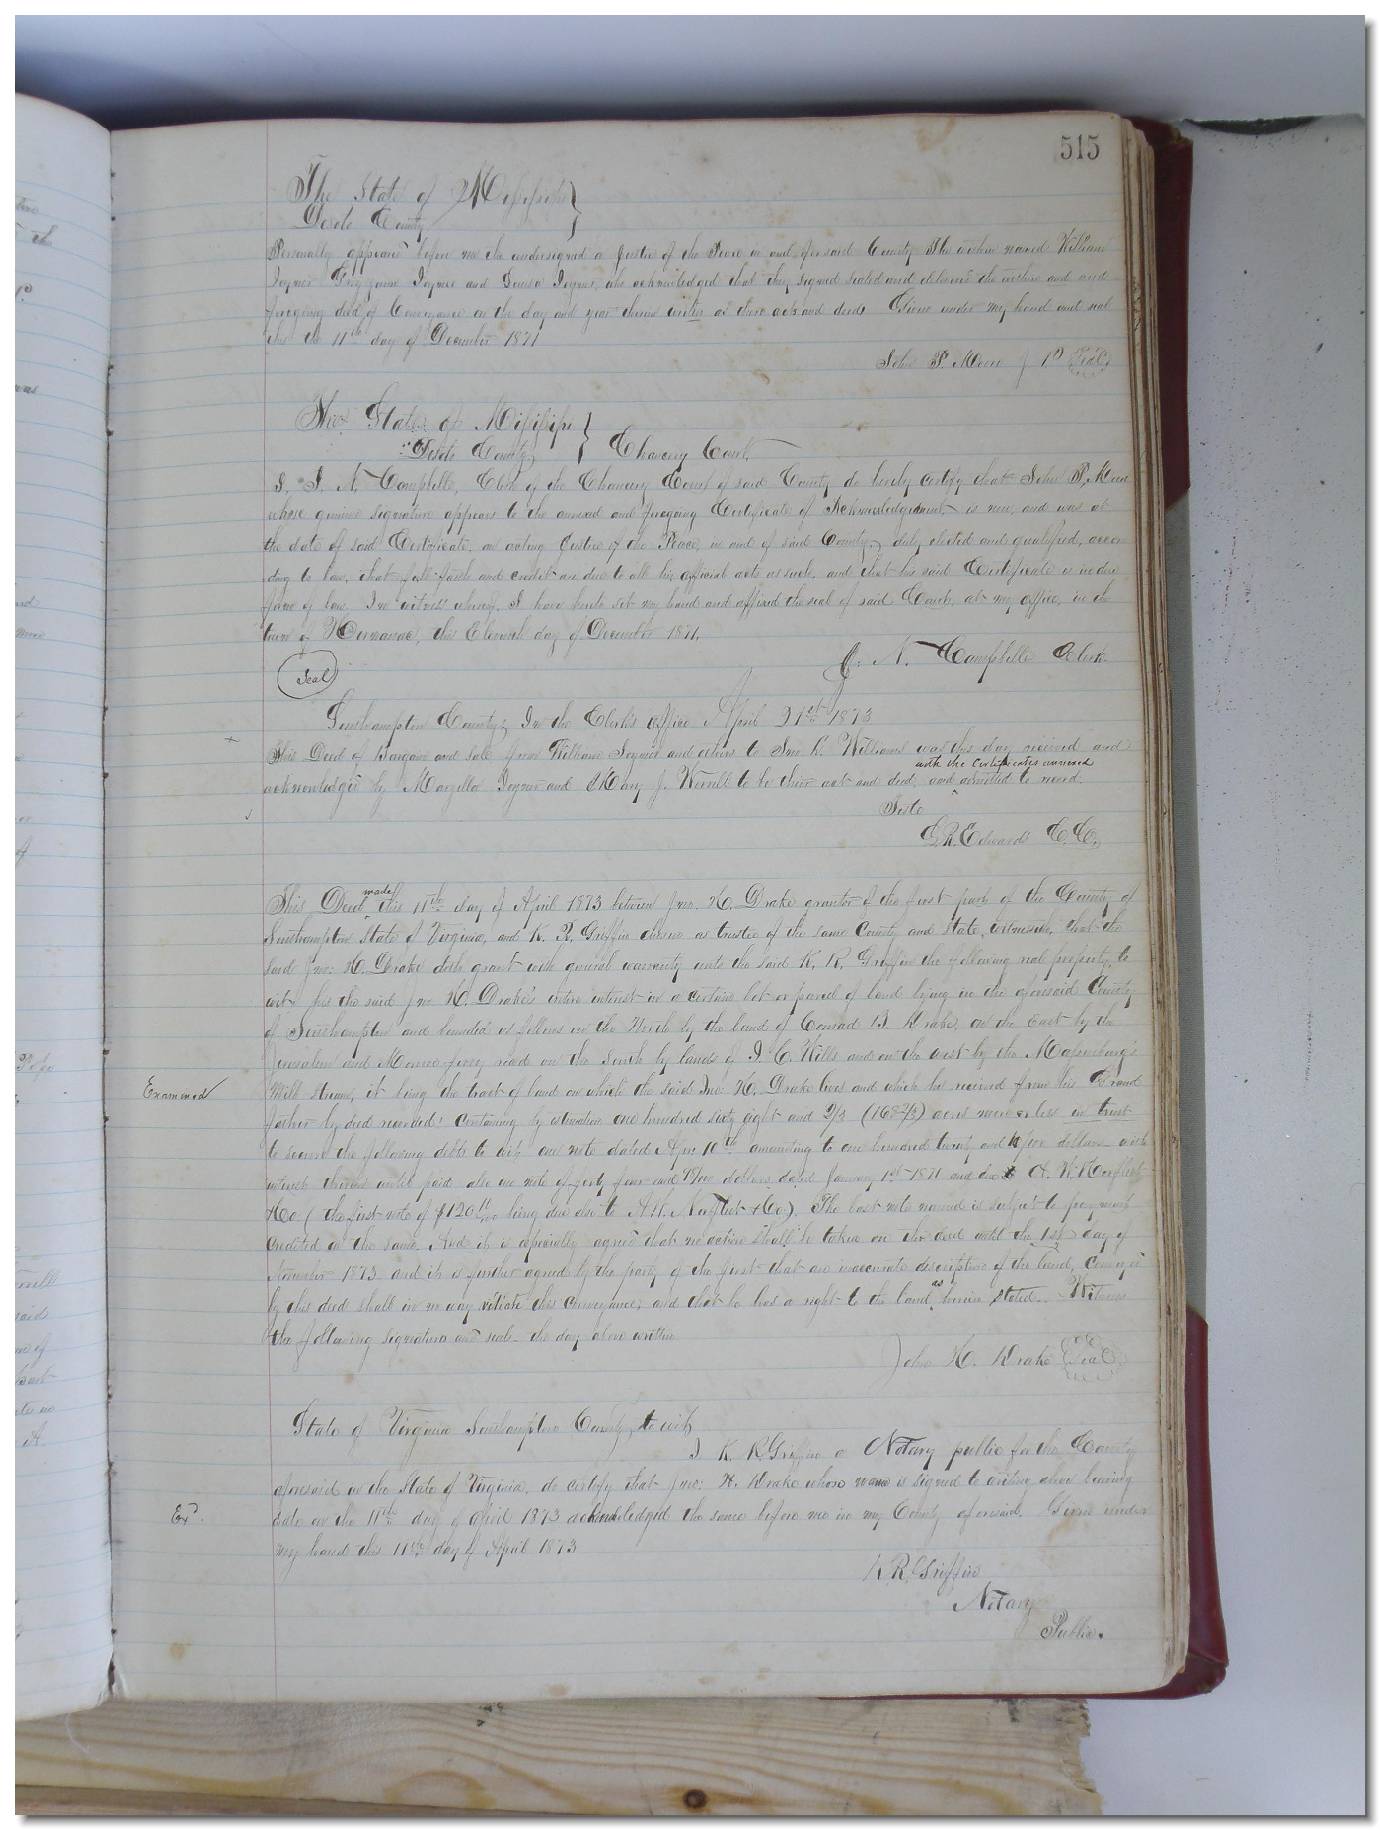 515
The State of Mississippi
Desoto County
Personally appeared before me the undersigned a Justice of the Peace in and for said County the within named William
Joyner Joyner and Louisa Joyner, who acknowledged that they signed sealed and delivered the within and
foregoing deed of Conveyance on the day and year therein written as their acts and deeds Given under my hand and seal
this the 11th day of December 1871
John P. Moore J P Seal
The State of Mississippi
Desoto County Chancery Court
I, J. N. Campbelle, Clerk of the Chancery Court of said County do hereby certify that John P. Moore
whose genuine signature appears to the annexed and foregoing Certificate of Acknowledgement is now, and was at
the date of said Certificate, an acting Justice of the Peace, in and of said County, duly elected and qualified, accor
ding to law, that full faith and credit are due to all his official acts as such, and that his said Certificate is in due
form of law. In witness whereof, I have hereto set my hand and affixed the seal of said Court, at my office, in the
town of Hernando, this Eleventh day of December 1871.
J. N. Campbelle Clerk.
Seal
Southampton County; In the Clerk's office April 21st 1873
This Deed of Bargain and Sale from William Joyner and others to Jno R. Williams was this day received and
with the certificates annexed
acknowledged by Joyner and Mary J. Worrell to be their act and deed, and admitted to record.
Teste
L. R. Edwards C. C.
made
This Deed this 11th day of April 1873 between Jno. H. Drake grantor of the first part of the County of
Southampton State of Virginia, and K. R. Griffin as trustee of the same County and State, witnesseth, that the
said Jno: H. Drake doth grant with general warranty unto the said K. R. Griffin the following real property, to
wit the said Jno H. Drake's entire interest in a certain lot or parcel of land lying in the aforesaid County
of Southampton and bounded as follows on the North by the land of Conrad B. Drake, on the East by the
Jerusalem and Monroe ferry road on the South by lands of J. C. Wills and on the west by the Massenburg's
Examined
Mill stream, it being the tract of land on which the said Jno: H. Drake lives and which he received from his Grand
father by deed recorded: containing by estimation one hundred sixty eight and 2/3 (168 2/3) acres more or less in trust
to secure the following debts to wit: one note dated Apr. 10th amounting to one hundred twenty and dollars with
interest thereon until paid also one note of forty four and dollars dated January 1st 1871 and due to A. W. Norfleet
& Co (the first note of $120 being due also to A. W. Norfleet & Co). The last note named is subject to payment
credited on the same. And it is especially agreed that no action shall be taken on this deed until the 1st day of
November 1873 and it is further agreed by the party of the first that an inaccurate description of the land, conveyed
as
by this deed shall in no way vitiate this conveyance; and that he has a right to the land herein stated. Witness
the following signature and seal the day above written
John H. Drake Seal
State of Virginia Southampton County, to wit,
I K. R. Griffin a Notary public for the County
aforesaid in the State of Virginia, do certify that Jno: H. Drake whose name is signed to writing above bearing
Exd.
date on the 11th day of April 1873 acknowledged the same before me in my County aforesaid. Given under
my hand this 11th day of April 1873
K. R. Griffin
Notary
Public.